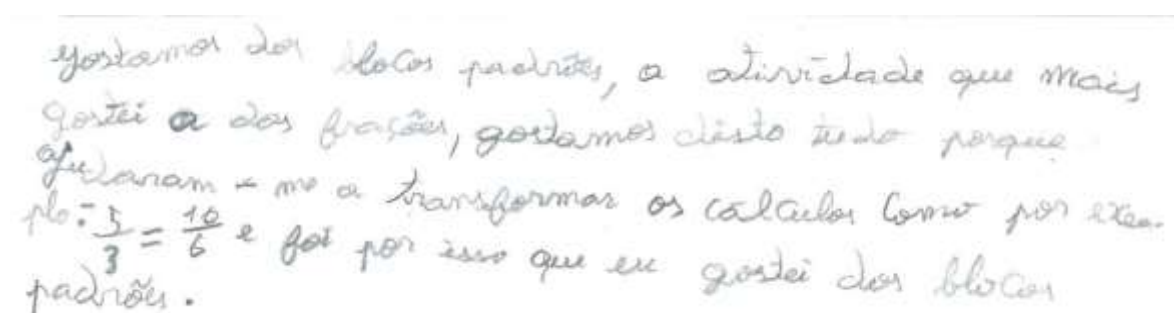 gostamos dos blocos padrões, a atividade que mais
gostei a das frações, gostamos disto tudo porque
ajudaram-me a transformar os cálculos como por exem-
plo: 5/3 = 10/6 e foi por isso que eu gostei dos blocos
padrões.